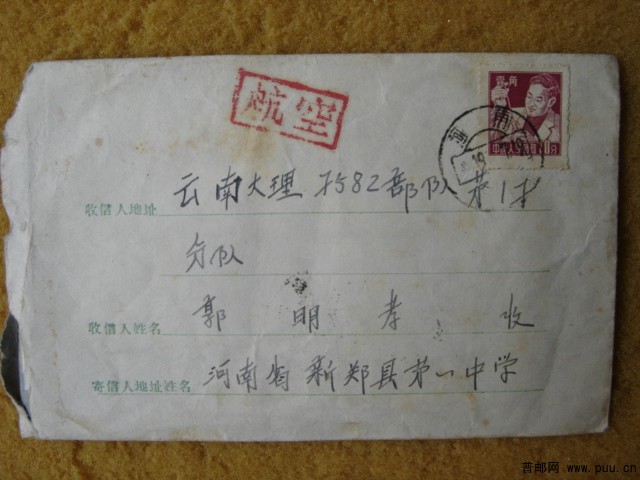 航空
壹角
中国人民邮政 10分
河南
收信人地址 云南大理7582部队第1支
分队
收信人姓名 郭明孝 收
寄信人地址姓名 河南省新郑县第一中学
普邮网 www.puu.cn